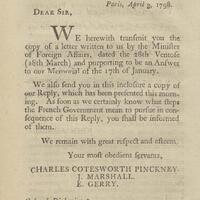 Paris, April 3, 1798.
DEAR SIR,
WE herewith transmit you the
copy of a letter written to us by the Minister
of Foreign Affairs, dated the 28th Ventose
(18th March) and purporting to be an Answer
to our Memorial of the 17th of January.
We also send you in this inclosure a copy of
our Reply, which has been presented this morn-
ing. As soon as we certainly know what steps
the French Government mean to pursue in con-
sequence of this Reply, you shall be informed
of them.
We remain with great respect and esteem.
Your most obedient servants,
CHARLES COTESWORTH PINCKNEY
J. MARSHALL.
E. GERRY.